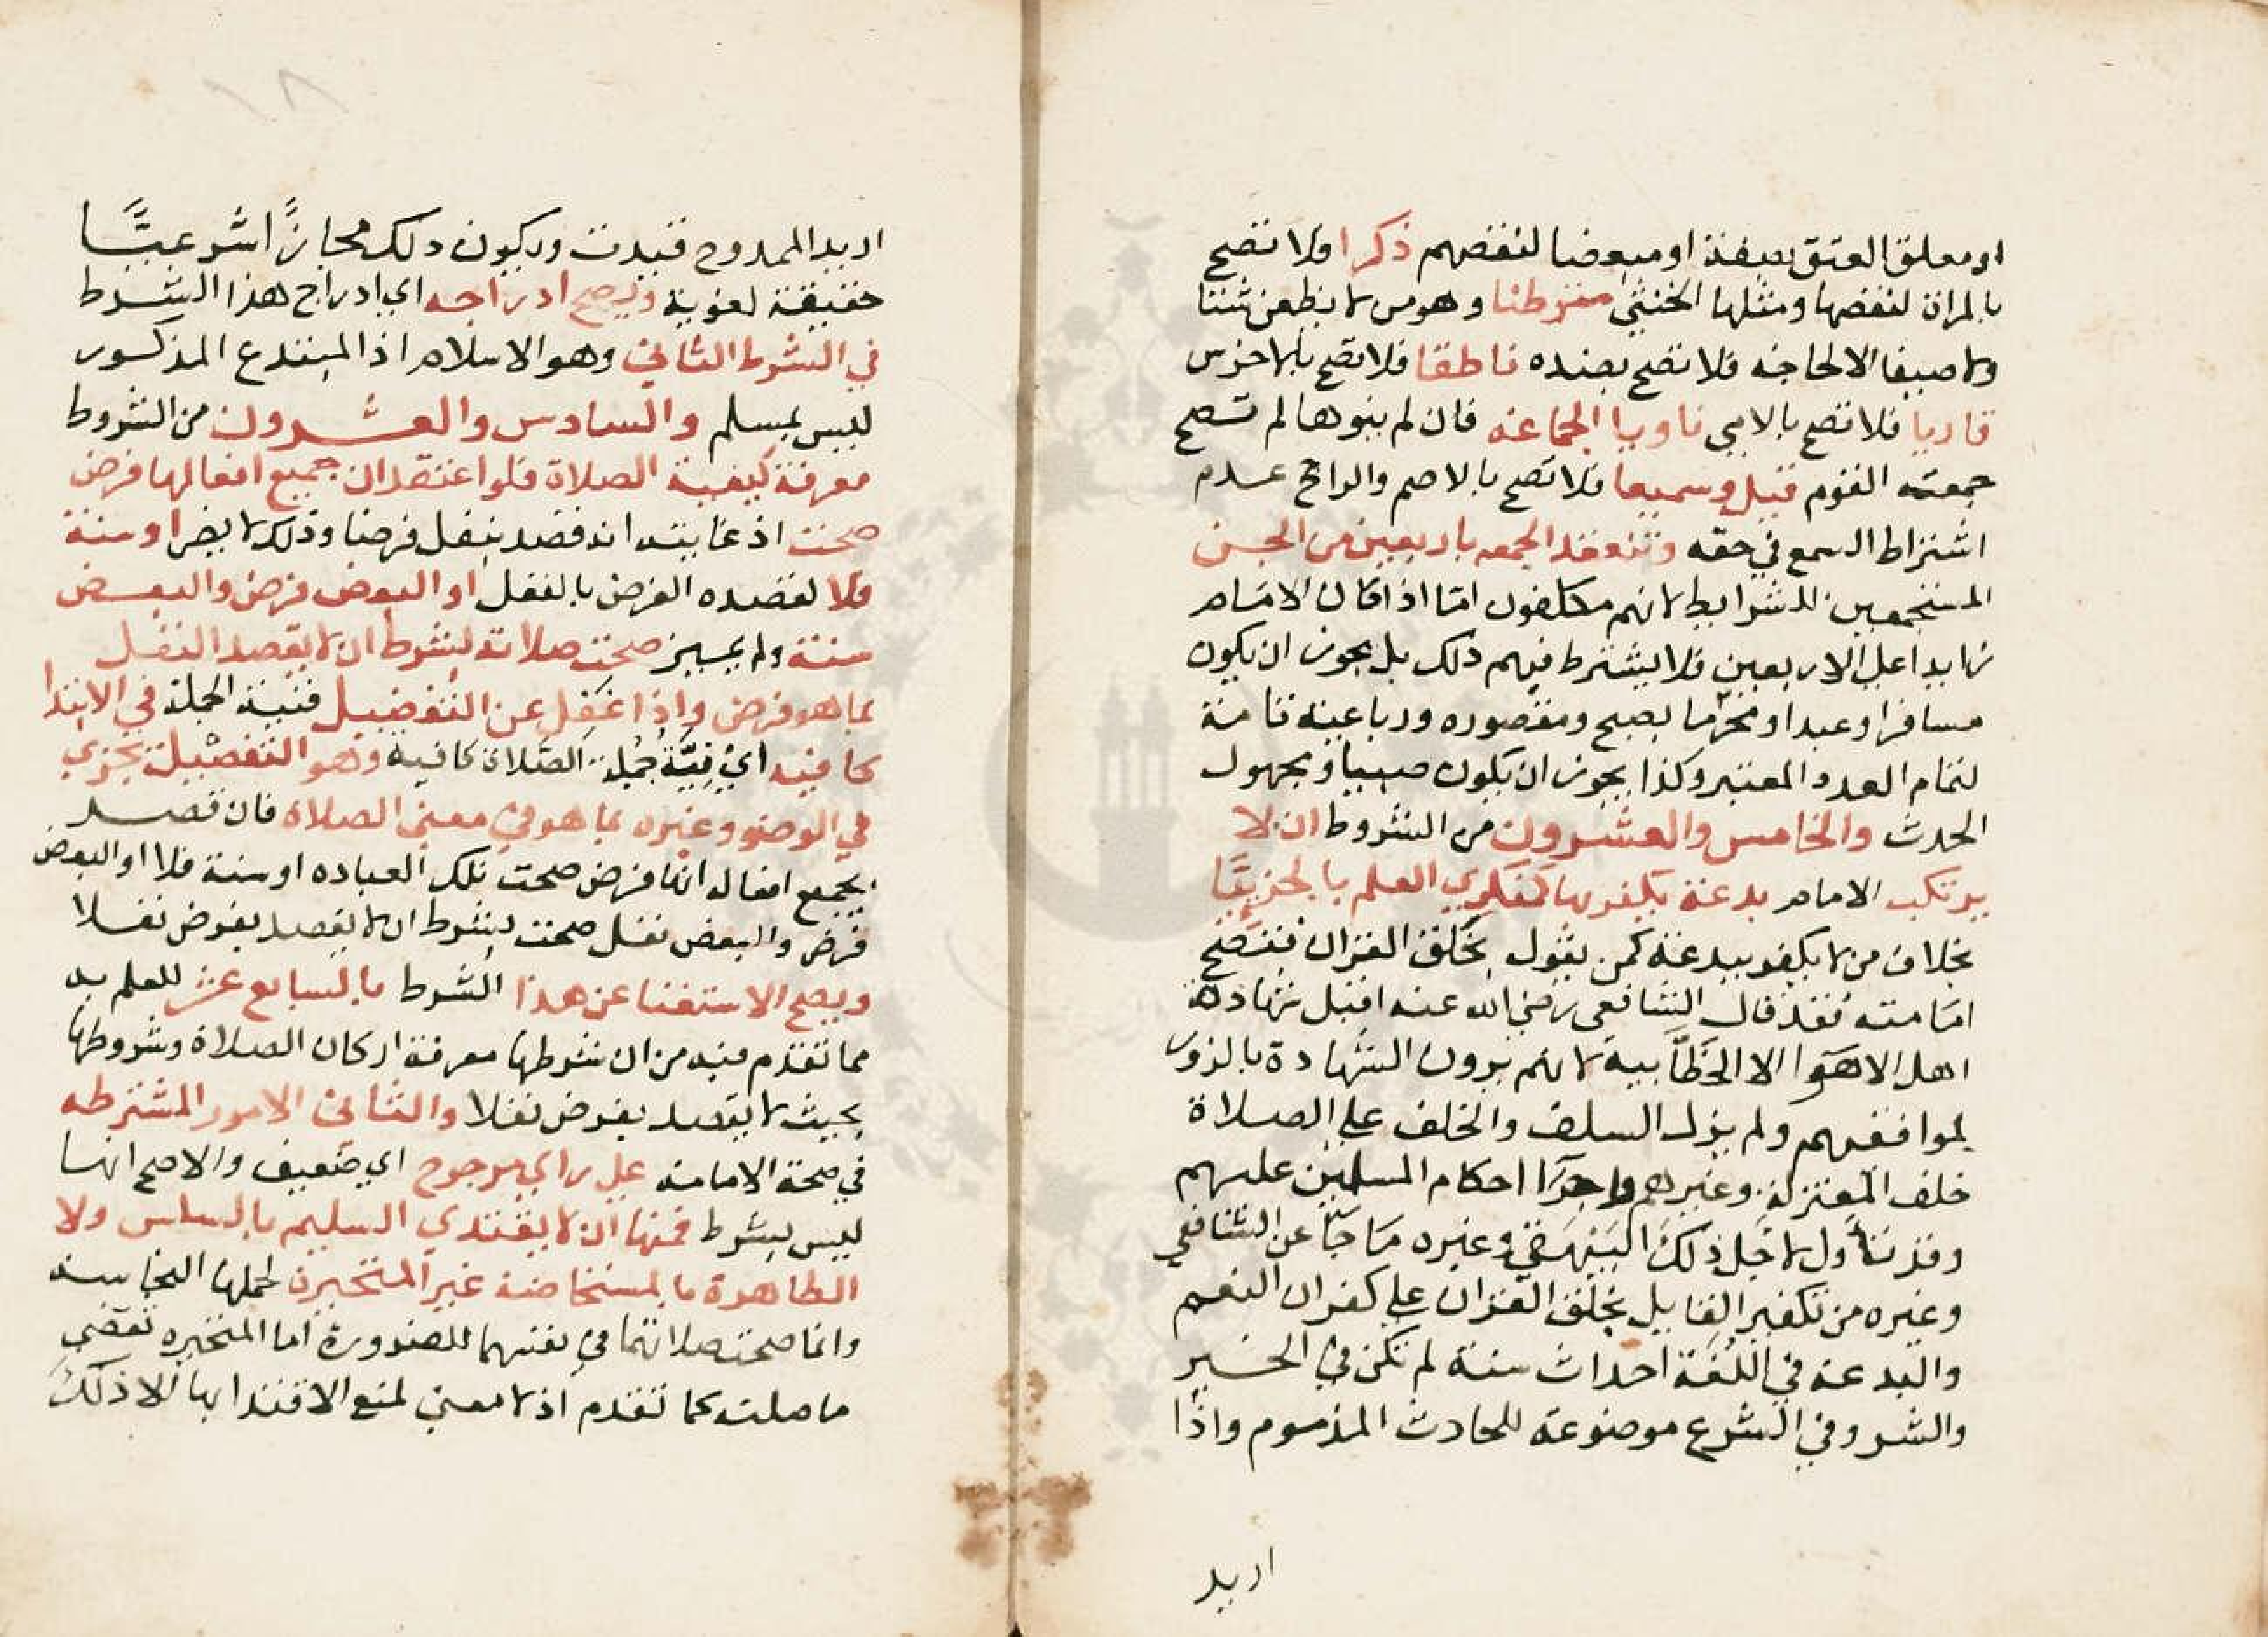 او معلق العتق بصفة او مبعضا لنقصهم ذكرا فلا تصح
بالمراة لنقصها ومثلها الخنثى متوطنا وهو من لا يظعن شتا
ولا صيفا الا لحاجه فلا تصح بضده ناطقا فلا تصح بالاخرس
قاريا فلا تصح بالامي ناويا الجماعه فان لم ينوها لم تصح
جمعته القوم قبل وسميعا فلا تصح بالاصم والراجح عدم
اشتراط السمع في حقه وتنعقد الجمعه باربعين من الجن
المستجمعين للشرايط لانهم مكلفون امّا اذا كان الامام
زايدا على الاربعين فلا يشترط فيهم ذلك بل يجوز ان يكون
مسافرا وعبدا ومحرما بصبح ومقصوره ورباعيه تامة
لتمام العدد المعتبر وكذا يجوز ان يكون صبيا ومجهول
الحدث والخامس والعشرون من الشروط ان لا
يرتكب الامام بدعة يكفر بها كمنكري العلم بالجزييّا
بخلاف من لا يكفر ببدعته كمن يقول بخلق القران فتصح
امامته فقد قال الشافعي رضي الله عنه اقبل شهادة
اهل الاهوا الا الخطّابية لانهم يرون الشهادة بالزور
لموافقهم ولم يزل السلف والخلف على الصلاة
خلف المعتزلة وغيرهم واجرا احكام المسلمين عليهم
وقد تأول لاجل ذلك البيهقي وغيره ما جا عن الشافعي
وغيره من تكفير القايل بخلق القران على كفران النعم
والبدعه في اللغة احداث سنة لم تكن في الخير
والشر وفي الشرع موضوعة للحادث المذموم واذا
اريد
اريد الممدوح قيدت ويكون ذلك مجازًا شرعيّا
حقيقة لغوية ويصح ادراجه اي ادراج هذا الشرط
في الشرط الثاني وهو الاسلام اذ المبتدع المذكور
ليس بمسلم والسادس والعشرون من الشروط
معرفة كيفية الصلاة فلو اعتقد ان جميع افعالها فرض
صحت اذ غايته انه قصد بنفل فرضا وذلك لا يضر او سنة
فلا لقصده الفرض بالنفل او البعض فرض والبعض
سنة ولم يميز صحت صلاته بشرط ان لا يقصد النفل
بما هو فرض واذا غفل عن التفضيل فنية الجملة في الابتدا
كافيه اي نيّة جملة الصّلاة كافية وهو التفصيلة يجزي
في الوضو وغيره بما هو في معنى الصلاة فان قصد
بجميع افعاله انها فرض صحت تلك العباده او سنة فلا او البعض
فرض والبعض نفل صحت بشرط ان لا يقصد بفرض نفلا
ويصح الاستغنا عن هذا الشرط بالسابع عشر للعلم به
مما تقدم فيه من ان شروطها معرفة اركان الصلاة وشروطها
بحيث لا يقصد بفرض نفلا والثاني الامور المشترطه
في صحة الامامه على راي مرجوح اي ضعيف والاصح انها
ليس بشرط فمنها ان لا يقتدي السليم بالسلس ولا
الطاهرة بالمستحاضة غير المتحيرة لحملها النجاسة
وانما صحت صلاتهما في نفسهما للضرورة اما المتحيره تقضي
ما صلت كما تقدم اذ لا معنى لمنع الاقتدا بها الا ذلك